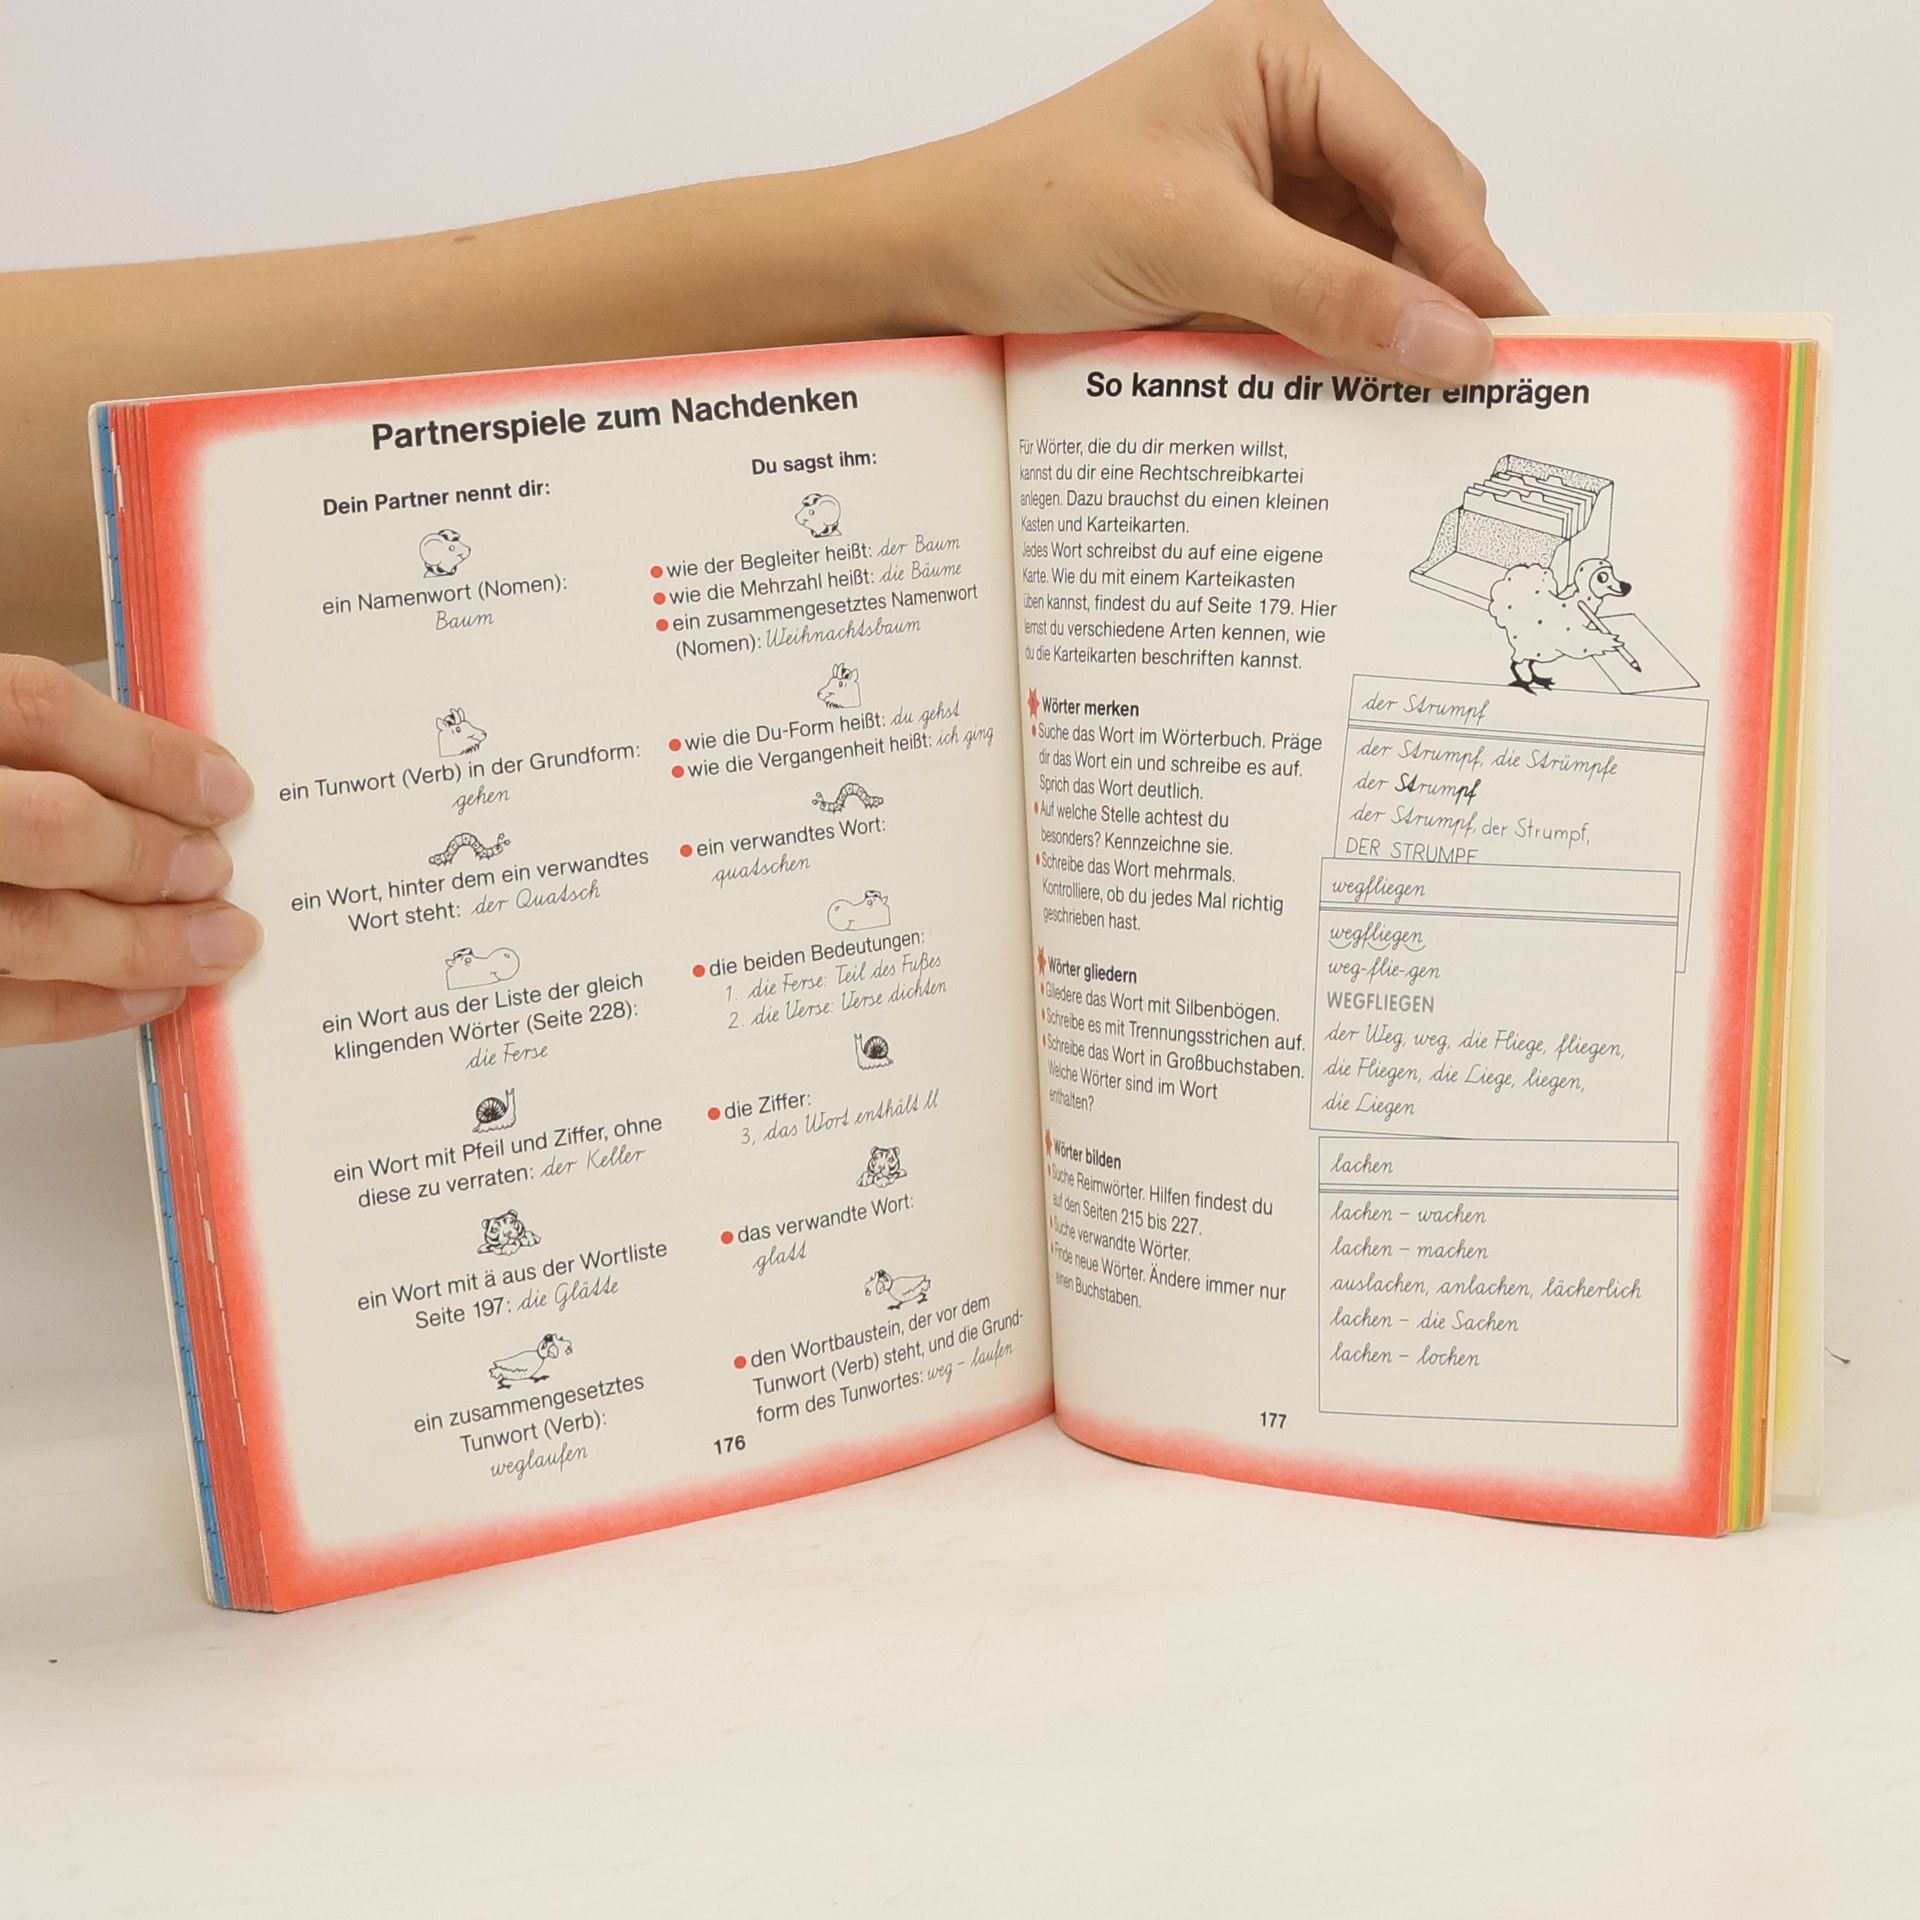 Partnerspiele zum Nachdenken
Dein Partner nennt dir:
Du sagst ihm:
ein Namenwort (Nomen):
Baum
wie der Begleiter heißt: der Baum
wie die Mehrzahl heißt: die Bäume
ein zusammengesetztes Namenwort
(Nomen): Weihnachtsbaum
ein Tunwort (Verb) in der Grundform:
gehen
wie die Du-Form heißt: du gehst
wie die Vergangenheit heißt: ich ging
ein Wort, hinter dem ein verwandtes
Wort steht: der Quatsch
ein verwandtes Wort:
quatschen
ein Wort aus der Liste der gleich
klingenden Wörter (Seite 228):
die Ferse
die beiden Bedeutungen:
1. die Ferse: Teil des Fußes
2. die Verse: Verse dichten
ein Wort mit Pfeil und Ziffer, ohne
diese zu verraten: der Keller
die Ziffer:
3, das Wort enthält ll
ein Wort mit ä aus der Wortliste
Seite 197: die Glätte
das verwandte Wort:
glatt
ein zusammengesetztes
Tunwort (Verb):
weglaufen
den Wortbaustein, der vor dem
Tunwort (Verb) steht, und die Grund-
form des Tunwortes: weg – laufen
176
So kannst du dir Wörter einprägen
Für Wörter, die du dir merken willst,
kannst du dir eine Rechtschreibkartei
anlegen. Dazu brauchst du einen kleinen
Kasten und Karteikarten.
Jedes Wort schreibst du auf eine eigene
Karte. Wie du mit einem Karteikasten
üben kannst, findest du auf Seite 179. Hier
lernst du verschiedene Arten kennen, wie
du die Karteikarten beschriften kannst.
Wörter merken
Suche das Wort im Wörterbuch. Präge
dir das Wort ein und schreibe es auf.
Sprich das Wort deutlich.
Auf welche Stelle achtest du
besonders? Kennzeichne sie.
Schreibe das Wort mehrmals.
Kontrolliere, ob du jedes Mal richtig
geschrieben hast.
der Strumpf
der Strumpf, die Strümpfe
der Strumpf
der Strumpf, der Strumpf,
DER STRUMPF
Wörter gliedern
Gliedere das Wort mit Silbenbögen.
Schreibe es mit Trennungsstrichen auf.
Schreibe das Wort in Großbuchstaben.
Welche Wörter sind im Wort
enthalten?
wegfliegen
wegfliegen
weg-flie-gen
WEGFLIEGEN
der Weg, weg, die Fliege, fliegen,
die Fliegen, die Liege, liegen,
die Liegen
Wörter bilden
Suche Reimwörter. Hilfen findest du
auf den Seiten 215 bis 227.
Suche verwandte Wörter.
Finde neue Wörter. Ändere immer nur
einen Buchstaben.
lachen
lachen – wachen
lachen – machen
auslachen, anlachen, lächerlich
lachen – die Sachen
lachen – lochen
177